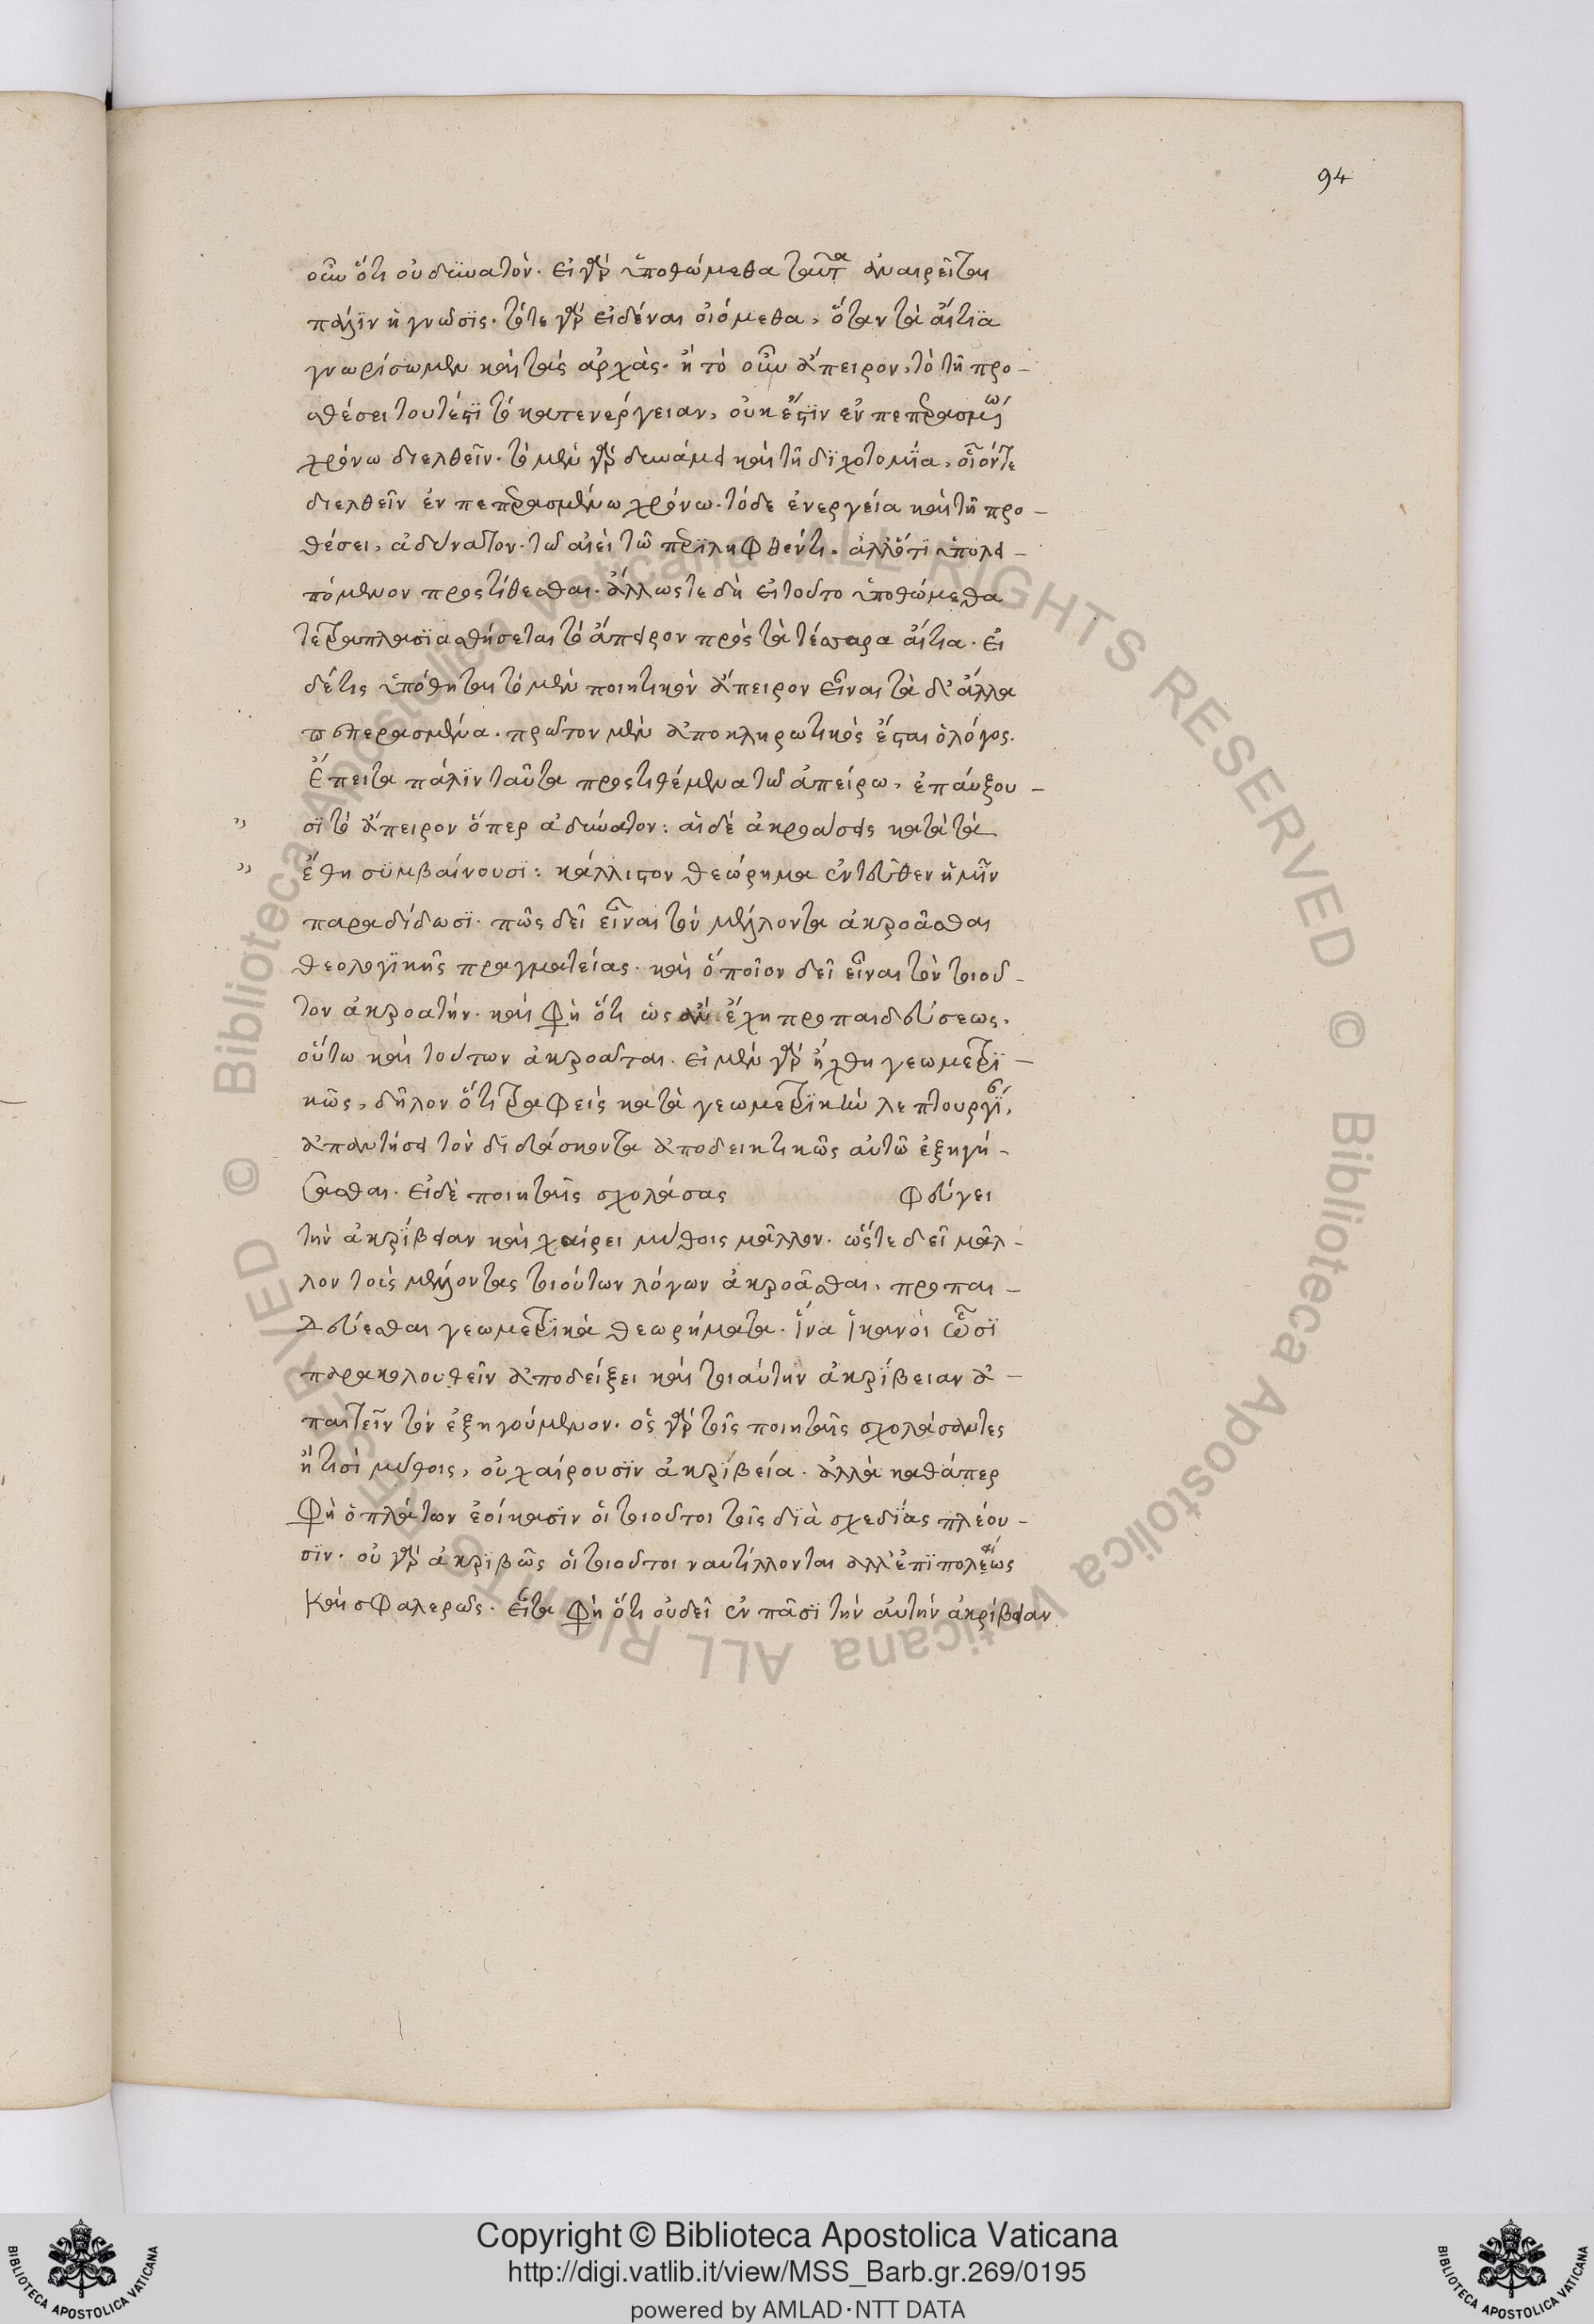 94
οὖν ὅτι οὐ δυνατόν. εἰ γὰρ ὑποθώμεθα ταῦτα ἀναιρεῖται
πάλιν ἡ γνῶσις. τότε γὰρ εἰδέναι οἰόμεθα, ὅταν τὰ αἴτια
γνωρίσωμεν καὶ τὰς ἀρχάς. ἢ τὸ οὖν ἄπειρον, τὸ τῆ προ-
σθέσει τουτέστι τὸ κατενέργειαν, οὐκ ἔστιν ἐν πεπερασμένω
χρόνω διελθεῖν. τὸ μὲν γὰρ δυνάμει καὶ τῆ διχοτομία, οἷόν τε
διελθεῖν ἐν πεπερασμένω χρόνω. τὸ δὲ ἐνεργεία καὶ τῆ προ-
θέσει, ἀδύνατον. τῶ αἰεὶ τῶ περιληφθέντι. ἀλλ' ὅτι ὑπολει-
πόμενον προστίθεσθαι. ἄλλως τε δὴ εἰ τοῦτο ὑποθώμεθα
τετραπλασιασθήσεται τὸ ἄπειρον πρὸς τὰ τέσσαρα αἴτια. εἰ
δέ τις ὑπόθηται τὸ μὲν ποιητικὸν ἄπειρον εἶναι τὰ δ' ἄλλα
πεπερασμένα. πρῶτον μὲν ἀποκληρωτικὸς ἔσται ὁ λόγος.
ἔπειτα πάλιν ταῦτα προστιθέμενα τῶ ἀπείρω, ἐπαύξου-
” σι τὸ ἄπειρον ὅπερ ἀδύνατον: αἱ δὲ ἀκροάσεις κατὰ τὰ
” ἔθη συμβαίνουσι: κάλλιστον θεώρημα ἐντεῦθεν ἡμῖν
παραδίδωσι. πῶς δεῖ εἶναι τὸν μέλλοντα ἀκροᾶσθαι
θεολογικῆς πραγματείας. καὶ ὁποῖον δεῖ εἶναι τὸν τοιοῦ-
τον ἀκροατήν. καὶ φησὶ ὅτι ὡς ἂν ἔχη προπαιδεύσεως,
οὕτω καὶ τούτων ἀκροᾶται. εἰ μὲν γὰρ ἤχθη γεωμετρι-
κῶς, δῆλον ὅτι τραφεὶς κατὰ γεωμετρικὴν λεπτουργίαν,
ἀπαιτήσει τὸν διδάσκοντα ἀποδεικτικῶς αὐτῶ ἐξηγή-
σασθαι. εἰ δὲ ποιηταῖς σχολάσας φεύγει
τὴν ἀκρίβειαν καὶ χαίρει μύθοις μᾶλλον. ὥστε δεῖ μᾶλ-
λον τοὺς μέλλοντας τοιούτων λόγων ἀκροᾶσθαι, προπαι-
δεύεσθαι γεωμετρικὰ θεωρήματα. ἵνα ἱκανοὶ ὦσι
παρακολουθεῖν ἀποδείξει καὶ τοιαύτην ἀκρίβειαν ἀ-
παιτεῖν τὸν ἐξηγούμενον. ὁς γὰρ τοῖς ποιηταῖς σχολάσαντες
ἤ τισι μύθοις, οὐ χαίρουσιν ἀκριβεία. ἀλλὰ καθάπερ
φησὶ ὁ πλάτων ἐοίκασιν οἱ τοιοῦτοι τοῖς διὰ σχεδίας πλέου-
σιν. οὐ γὰρ ἀκριβῶς οἱ τοιοῦτοι ναυτίλλονται ἀλλ' ἐπιπολαίως
καὶ σφαλερῶς. εἶτα φησὶ ὅτι οὐ δεῖ ἐν πᾶσι τὴν αὐτὴν ἀκρίβειαν
Copyright © Biblioteca Apostolica Vaticana
http://digi.vatlib.it/view/MSS_Barb.gr.269/0195
powered by AMLAD·NTT DATA
BIBLIOTECA APOSTOLICA VATICANA
BIBLIOTECA APOSTOLICA VATICANA
© Biblioteca Apostolica Vaticana ALL RIGHTS RESERVED © Biblioteca Apostolica Vaticana ALL RIGHTS RESERVED